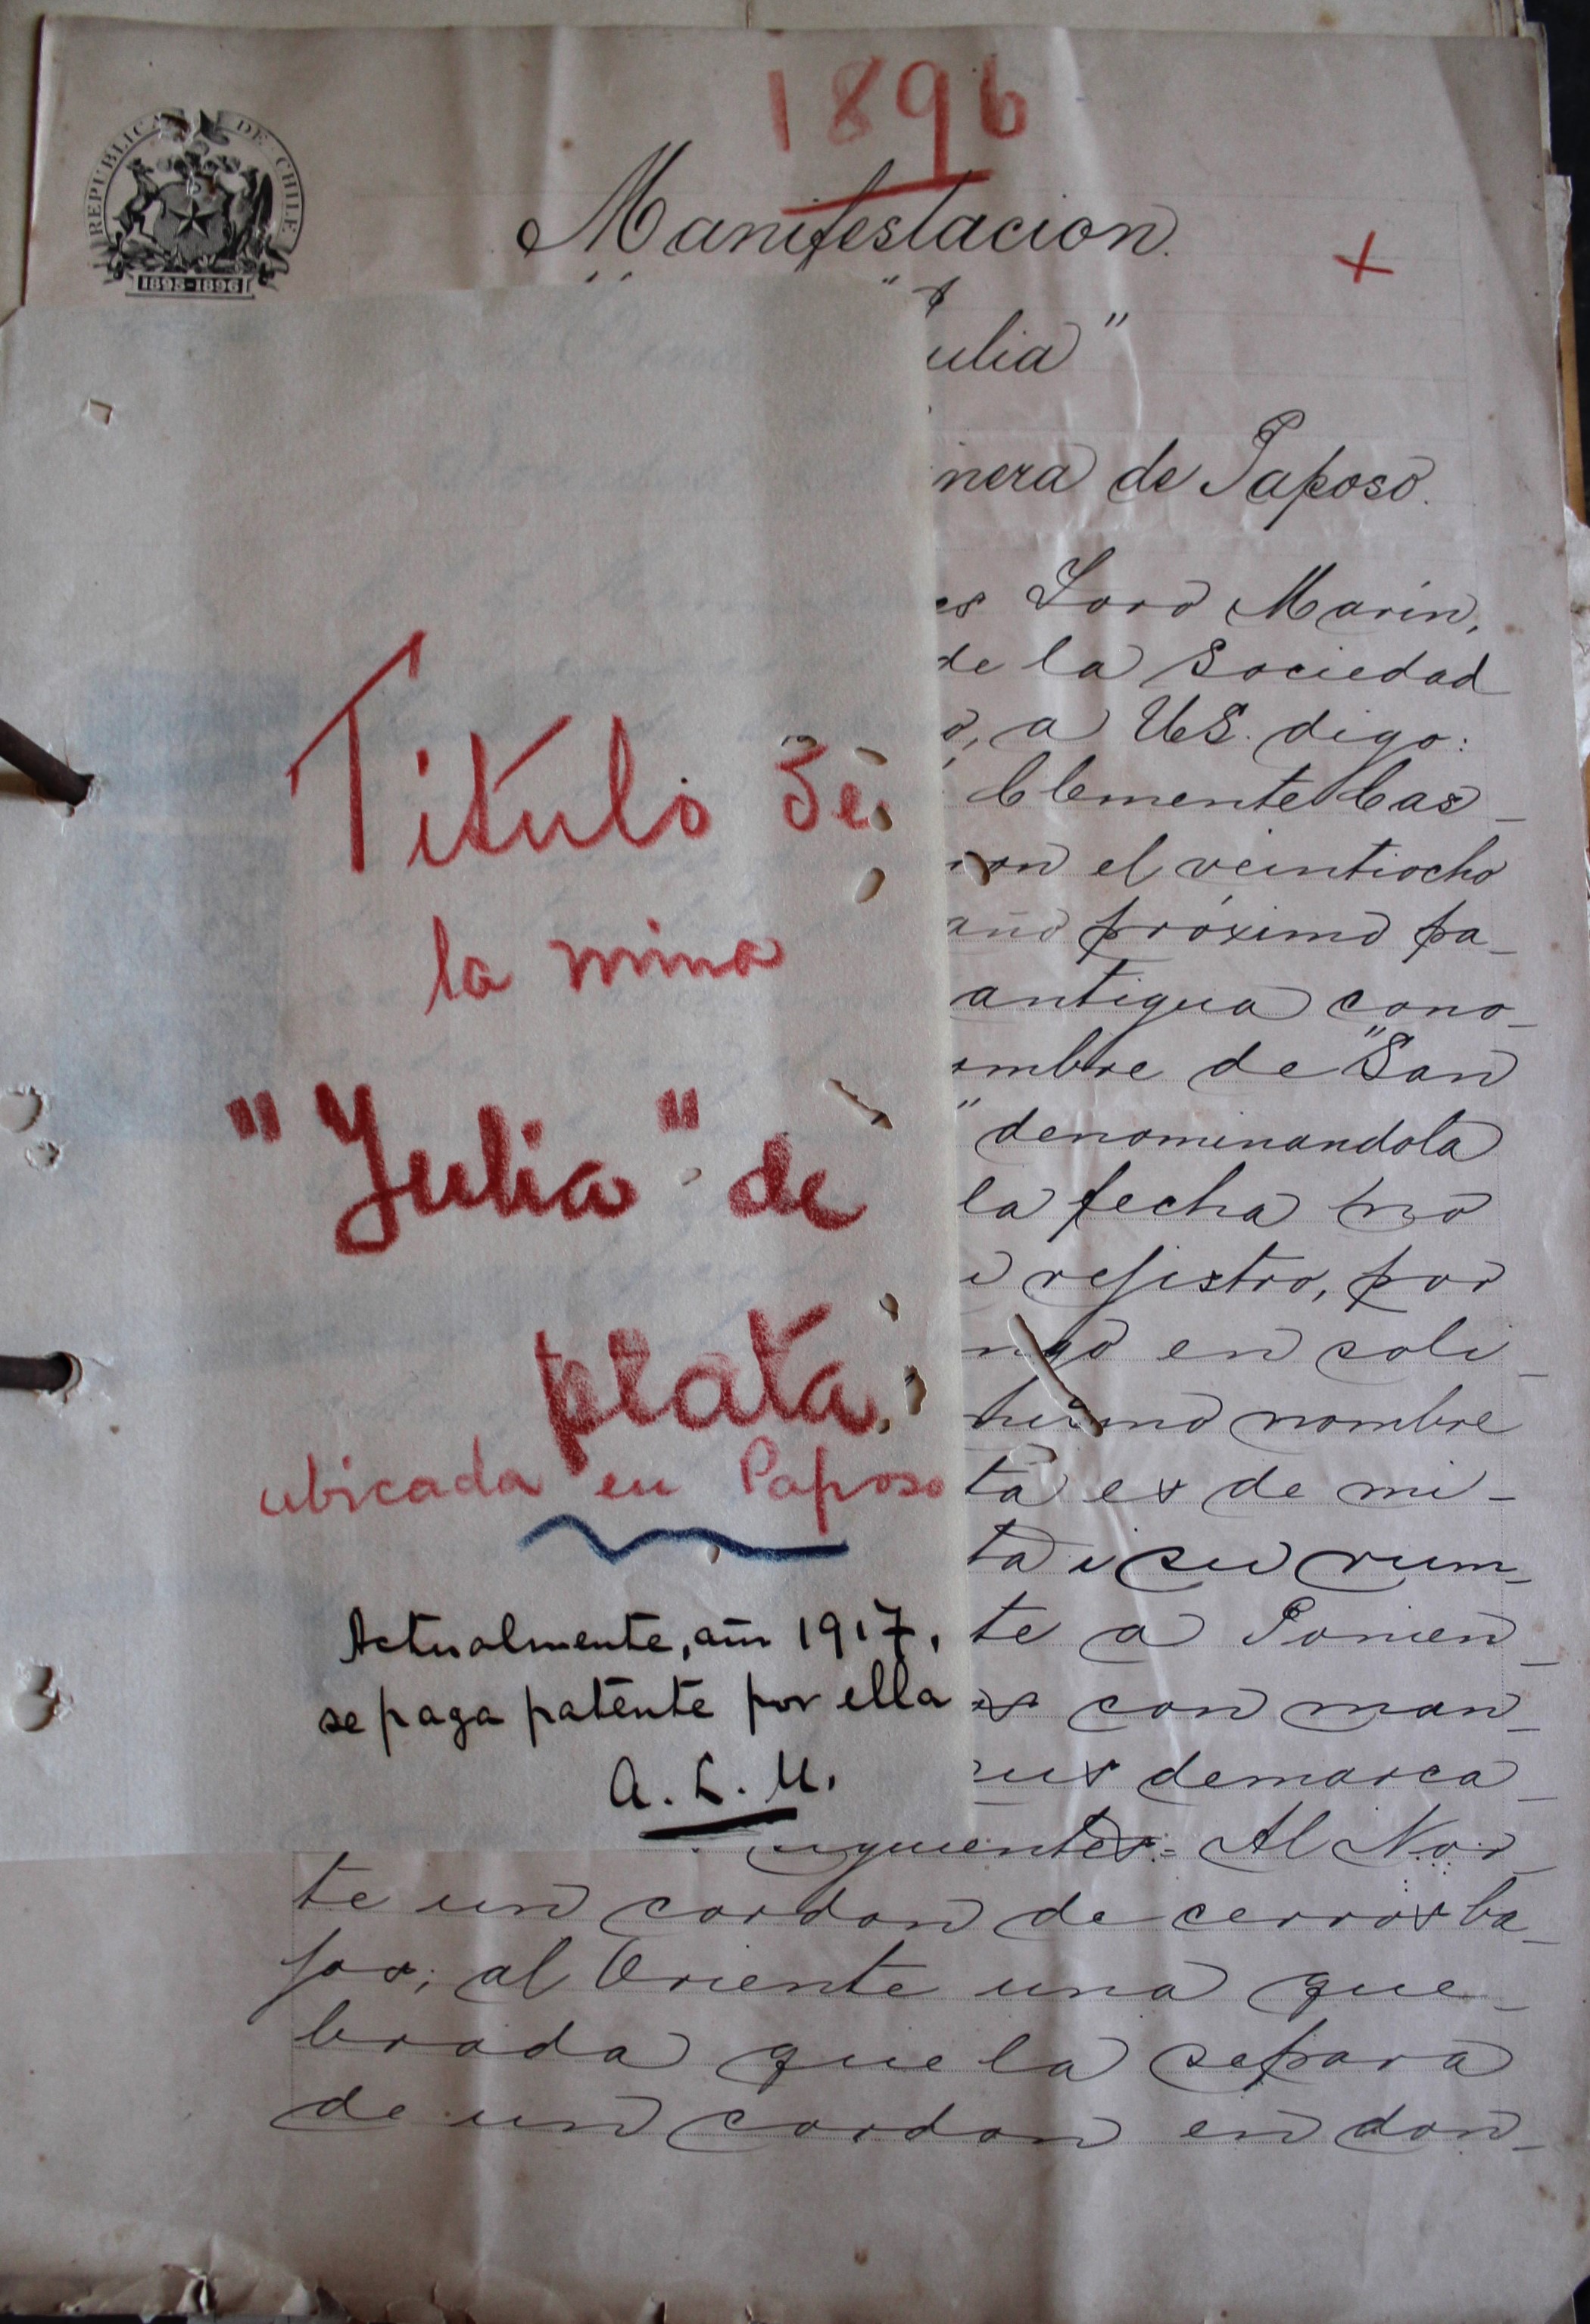 1896
REPUBLICA DE CHILE
1895-1896
Manifestacion.
ulia"
nera de Paposo.
es Loro Marin,
de la Sociedad
o, a US. digo:
Clemente Cas-
on el veintiocho
año próximo pa-
antigua cono-
mbre de "San
" denominandola
la fecha no
registro, por
ngo en soli-
mismo nombre
ta es de mi-
ta i su rum-
te a Ponien-
es con man-
rus demarca-
siguientes: Al Nor-
te un cordon de cerros ba-
jos; al Oriente una que-
brada que la separa
de un cordon en don-
Titulo de
la mina
"Julia" de
plata
ubicada en Paposo
Actualmente, año 1917,
se paga patente por ella
A. L. M.